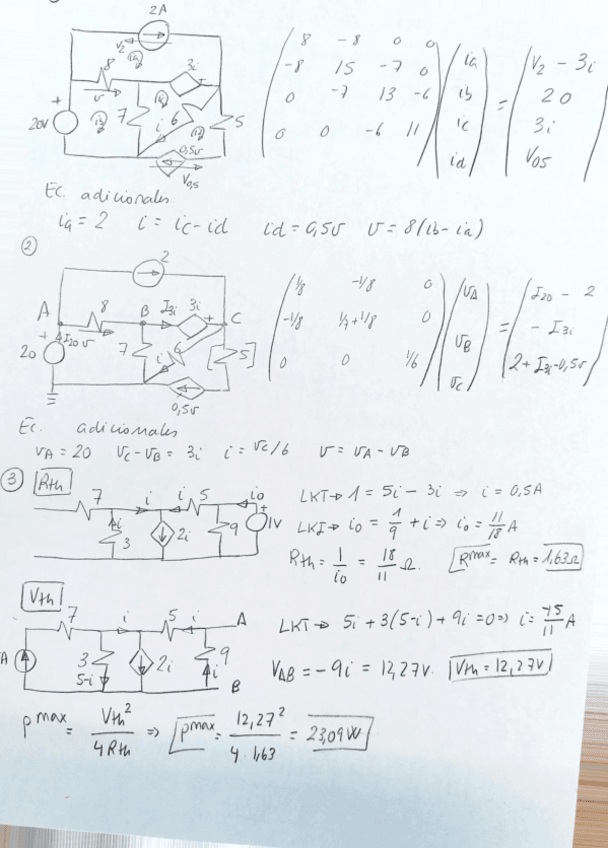 2A
v2 ia
8 3i
20V v ib 7 ic i 6 id 5
0,5v
V0,5
8 -8 0 0 ia V2 - 3i
-8 15 -7 0 ib 20
0 -7 13 -6 ic = 3i
0 0 -6 11 id V05
Ec. adicionales
ia = 2 i = ic - id id = 0,5v v = 8(ib - ia)
②
2
A 8 B I3i 3i C
20 I20 v 7 i 6 5
0,5v
1/8 -1/8 0 VA I20 - 2
-1/8 1/7+1/8 0 VB = - I3i
0 0 1/6 VC 2 + I3i - 0,5v
Ec. adicionales
vA = 20 vC - vB = 3i i = vC/6 v = vA - vB
③ Rth
7 i i 5 io
i 3 2i 9 1V
LKT → 1 = 5i - 3i ⇒ i = 0,5A
LKI → io = 1/9 + i ⇒ io = 11/18 A
Rth = 1/io = 18/11 Ω. Rmax = Rth = 1,63Ω
Vth
7 i 5 i A
A 3 5-i 2i 9 i B
LKT → 5i + 3(5-i) + 9i = 0 ⇒ i = -15/11 A
VAB = -9i = 12,27V. Vth = 12,27V
pmax = Vth²/4Rth ⇒ pmax = 12,27²/4·1,63 = 23,09W